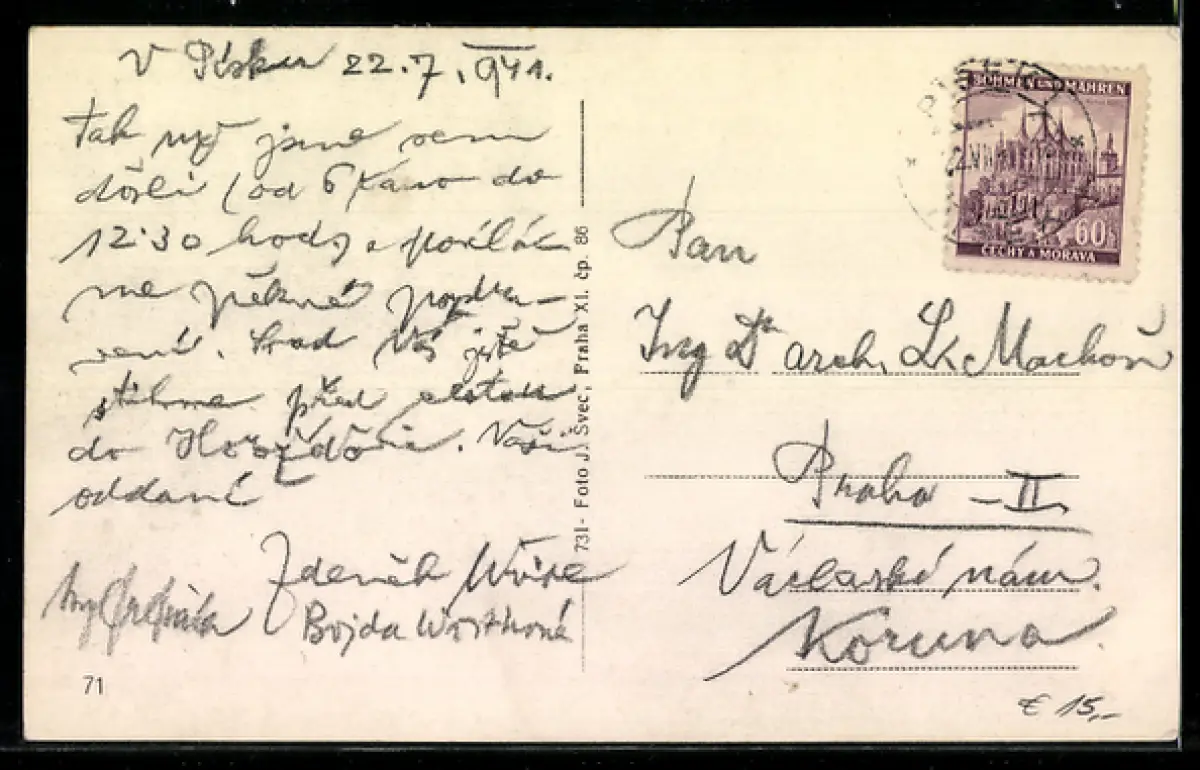 V Písku 22.7.1941.
Tak už jsme sem
došli (od 6 ráno do
12·30 hodů a posílá-
me pěkné pozdra-
vení. Snad Vás ještě
před
do Horažďovic. Vaši
oddaní
Zdeněk
Bojda
71
731 - Foto J. Švec, Praha XI. čp. 86
BÖHMEN UND MÄHREN
60h
ČECHY A MORAVA
Pan
Ing Dr arch. L. Machoň
Praha - II.
Václavské nám.
Koruna.
€ 15,-